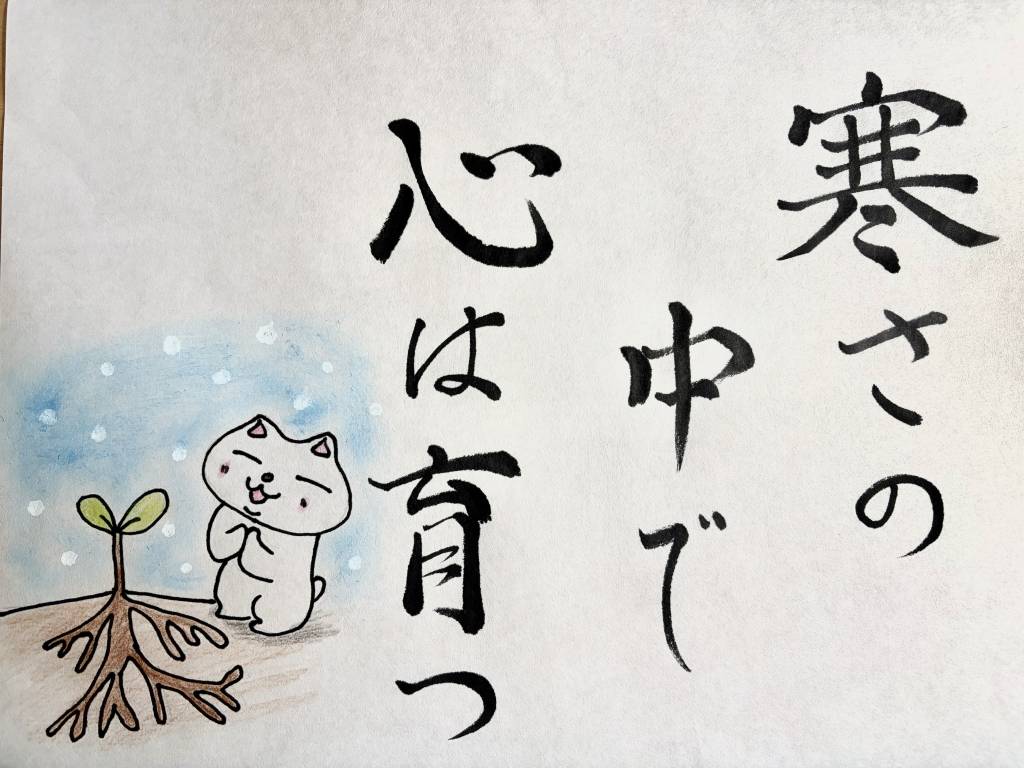 寒さの
中で
心は育つ